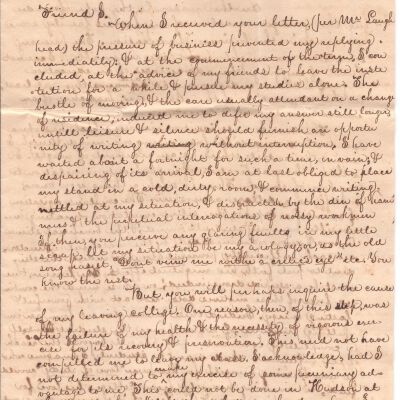 Friend S.
When I received your letter, (per Mr Laugh
head) the pressure of business prevented my replying
immediately; & at the commencement of the term, I con
cluded, at the advice of my friends to leave the insti
tution for a while & pursue my studies alone. The
bustle of moving, & the care usually attendant on a change
of residence, induced me to defer my answer still longer,
untill leisure & silence should furnish an opportu
nity of writing without interruption. I have
waited about a fortnight for such a time, in vain; &
despairing of its arrival, I am at last obligd to place
my stand in a cold, dirty room, & commence writing,
nettled at my situation, & distracted by the din of ham
mers & the perpetual interrogations of noisy workmen
If then, you perceive any glaring faults in my little
scrap, let my situation be my apology; or, as the old
song has it, "Dont view me with a critics eye" &c. You
know the rest.
But you will perhaps inquire the cause
of my leaving college. One reason, then, of this step, was
the failure of my health & the necessity of vigorous exer
cise for its recovery & preservation. This need not have
compelled me to leave my class. I acknowledge, had I
not determined to make my exercise of some pecuniary ad-
vantage to me. This could not be done in Hudson at